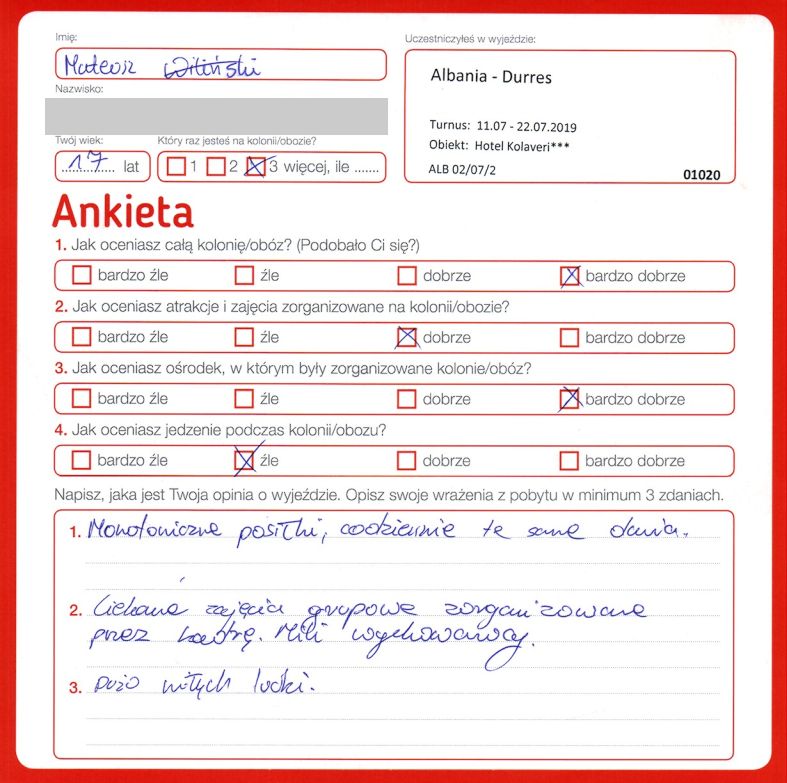 Imię:
Mateusz
Uczestniczyłeś w wyjeździe:
Nazwisko:
Albania - Durres
Turnus: 11.07 - 22.07.2019
Obiekt: Hotel Kolaveri***
ALB 02/07/2
01020
Twój wiek:
17 lat
Który raz jesteś na kolonii/obozie?
1 2 3 więcej, ile .......
Ankieta
1. Jak oceniasz całą kolonię/obóz? (Podobało Ci się?)
bardzo źle źle dobrze bardzo dobrze
2. Jak oceniasz atrakcje i zajęcia zorganizowane na kolonii/obozie?
bardzo źle źle dobrze bardzo dobrze
3. Jak oceniasz ośrodek, w którym były zorganizowane kolonie/obóz?
bardzo źle źle dobrze bardzo dobrze
4. Jak oceniasz jedzenie podczas kolonii/obozu?
bardzo źle źle dobrze bardzo dobrze
Napisz, jaka jest Twoja opinia o wyjeździe. Opisz swoje wrażenia z pobytu w minimum 3 zdaniach.
1. Monotoniczne posiłki, codziennie te same dania.
2. Ciekawe zajęcia grupowe zorganizowane
przez kadrę. Mili wychowawcy.
3. Dużo miłych ludzi.